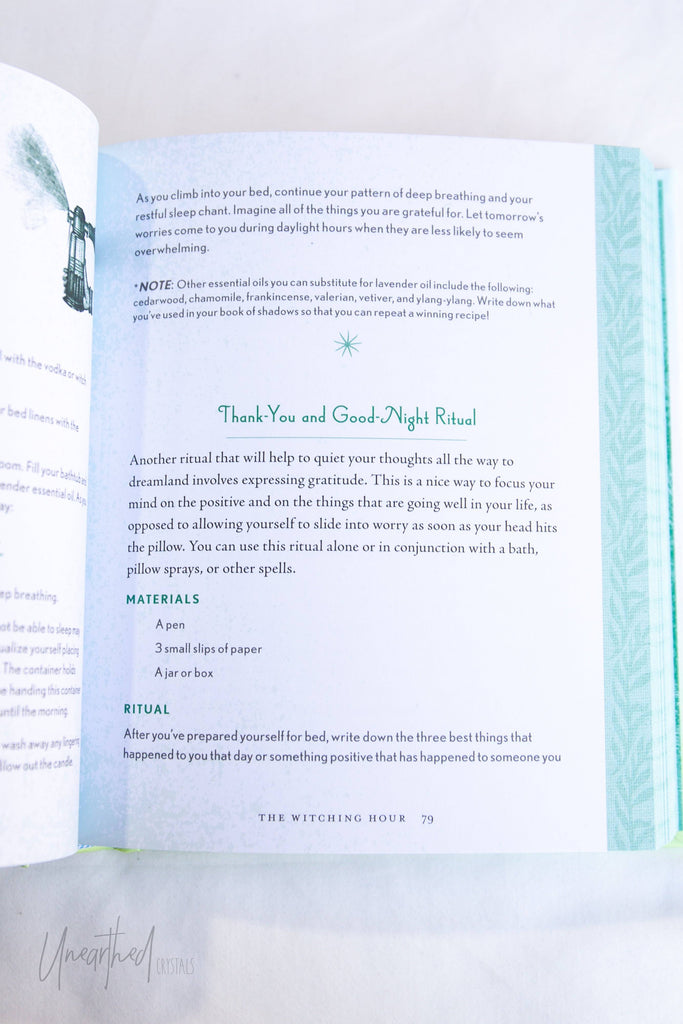 with the vodka or witch
r bed linens with the
oom. Fill your bathtub
ender essential oil. As
ay:
ep breathing.
not be able to sleep may
ualize yourself placing
The container holds
e handing this container
until the morning.
wash away any lingering
llow out the candle.
As you climb into your bed, continue your pattern of deep breathing and your
restful sleep chant. Imagine all of the things you are grateful for. Let tomorrow's
worries come to you during daylight hours when they are less likely to seem
overwhelming.
*NOTE: Other essential oils you can substitute for lavender oil include the following:
cedarwood, chamomile, frankincense, valerian, vetiver, and ylang-ylang. Write down what
you've used in your book of shadows so that you can repeat a winning recipe!
Thank-You and Good-Night Ritual
Another ritual that will help to quiet your thoughts all the way to
dreamland involves expressing gratitude. This is a nice way to focus your
mind on the positive and on the things that are going well in your life, as
opposed to allowing yourself to slide into worry as soon as your head hits
the pillow. You can use this ritual alone or in conjunction with a bath,
pillow sprays, or other spells.
MATERIALS
A pen
3 small slips of paper
A jar or box
RITUAL
After you've prepared yourself for bed, write down the three best things that
happened to you that day or something positive that has happened to someone you
THE WITCHING HOUR 79
Unearthed CRYSTALS